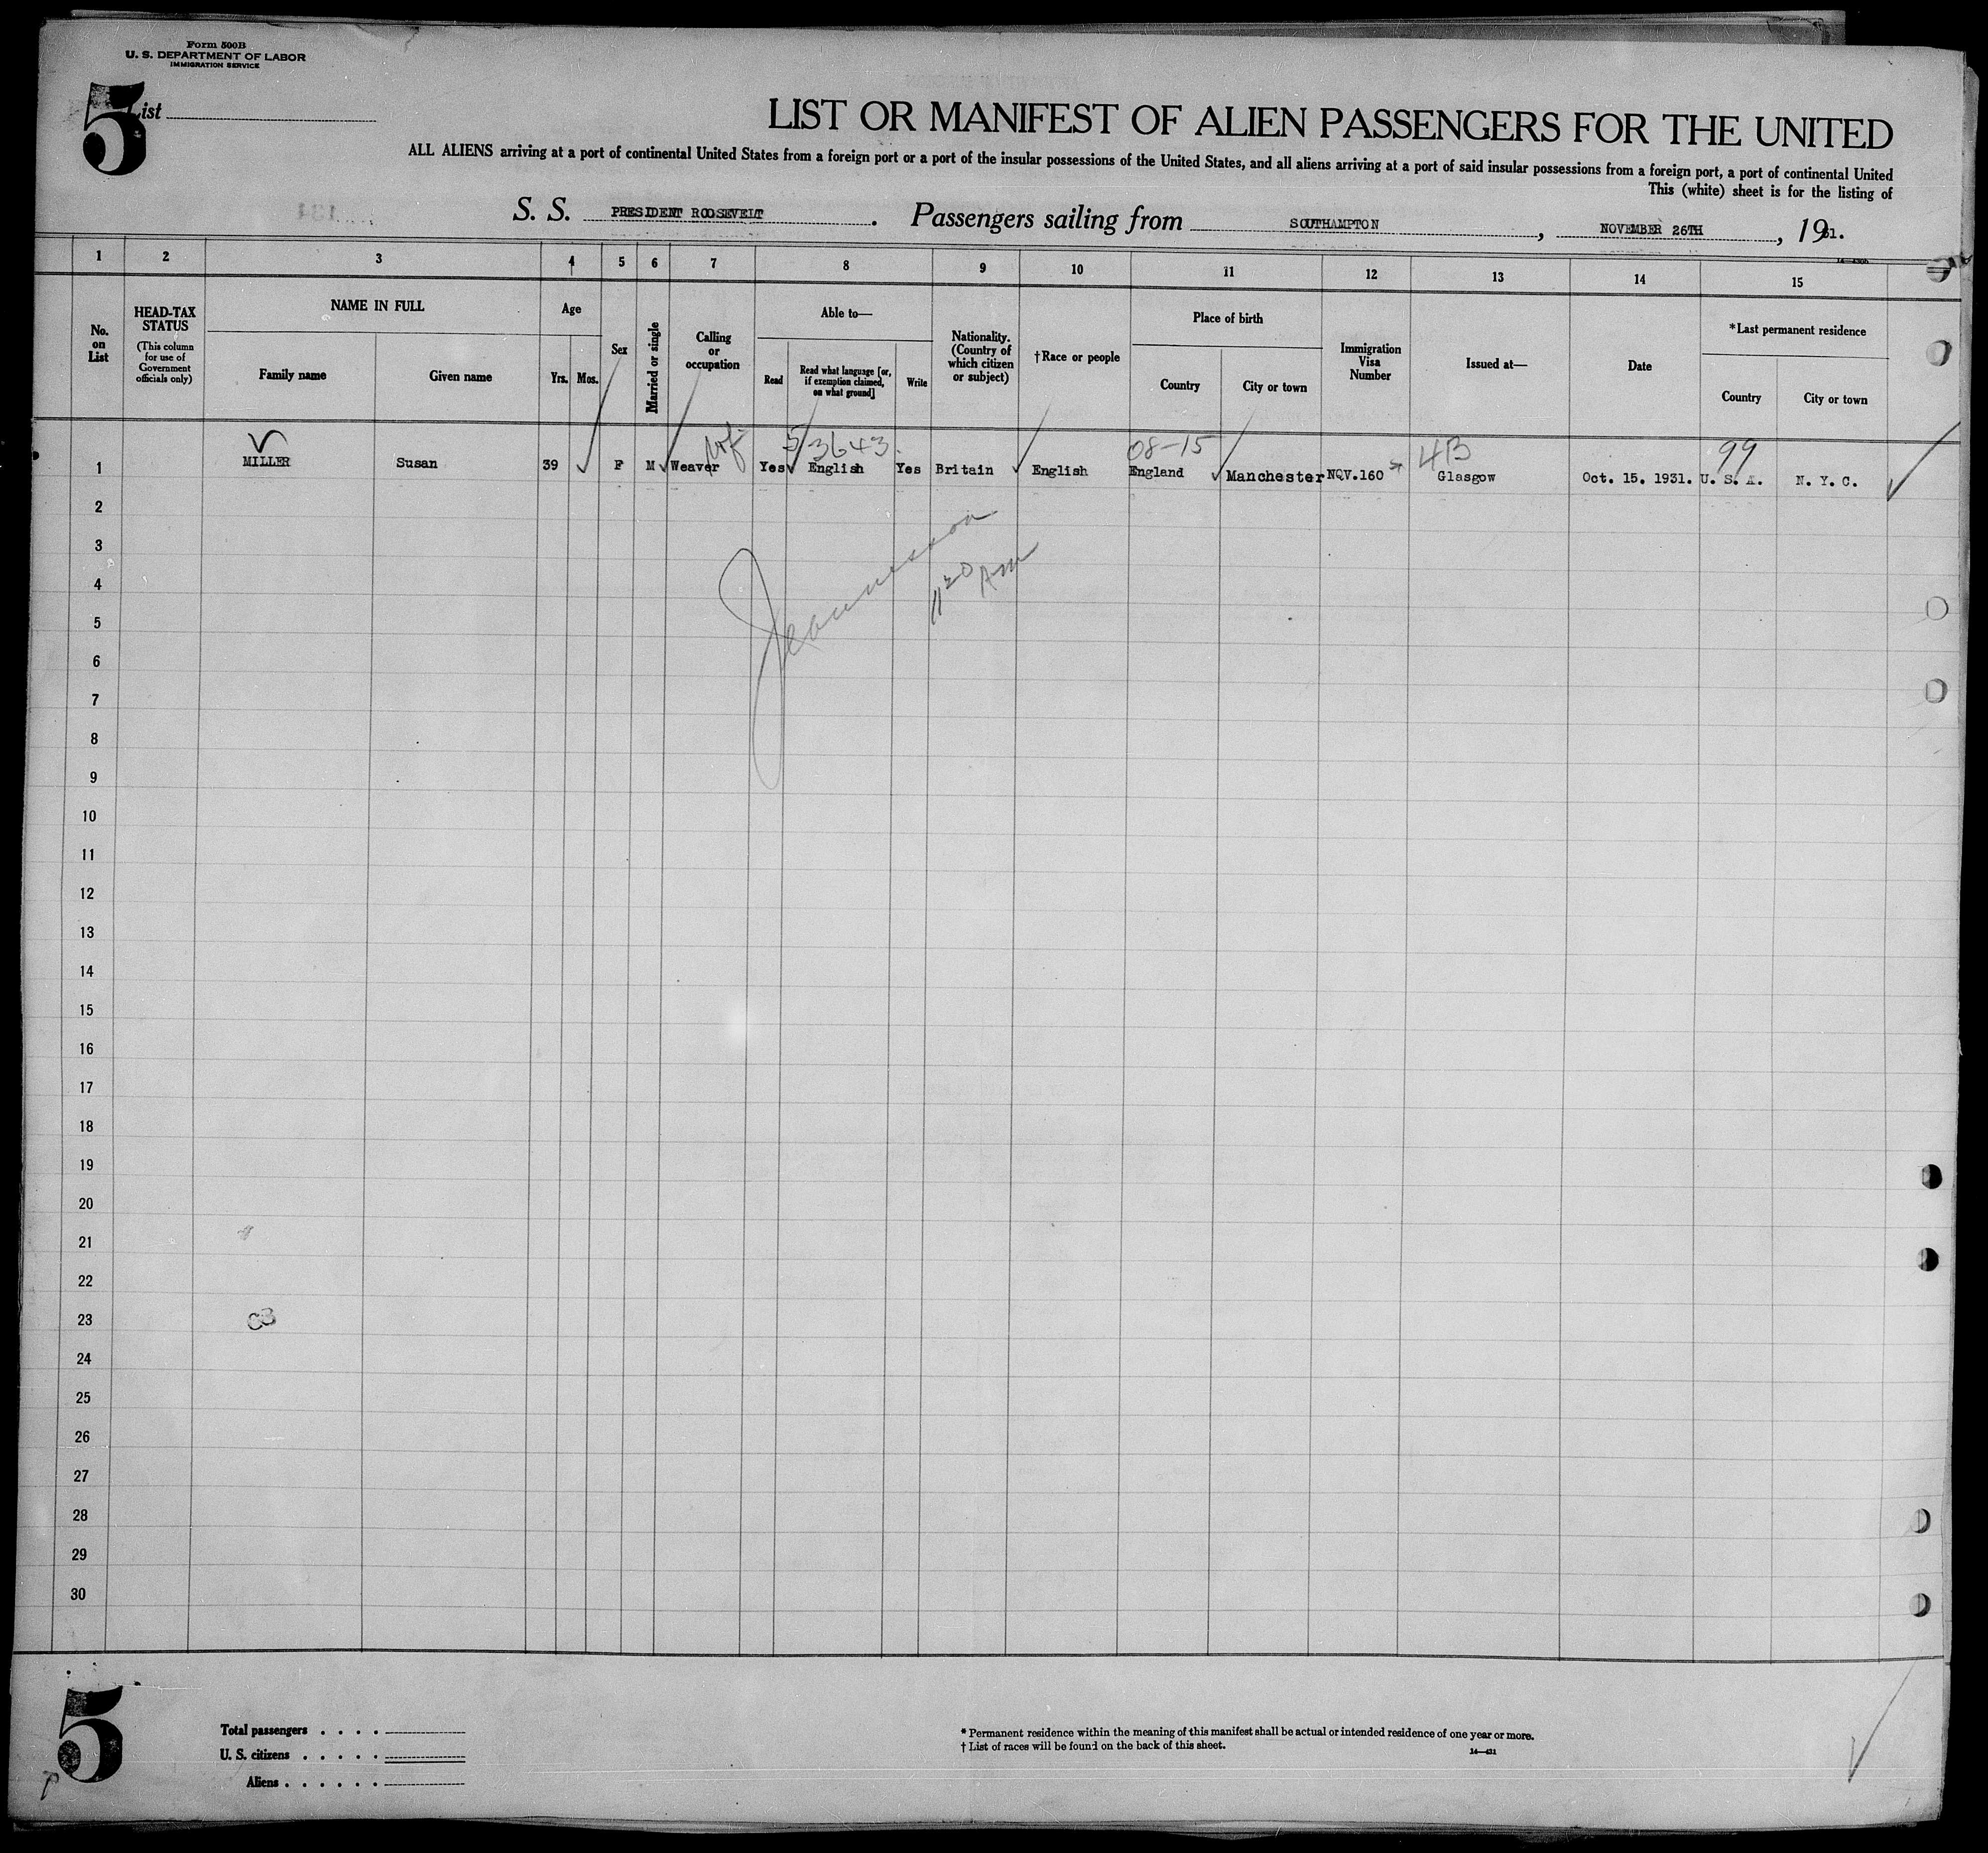 Form 500B
U. S. DEPARTMENT OF LABOR
IMMIGRATION SERVICE
5
List
LIST OR MANIFEST OF ALIEN PASSENGERS FOR THE UNITED
ALL ALIENS arriving at a port of continental United States from a foreign port or a port of the insular possessions of the United States, and all aliens arriving at a port of said insular possessions from a foreign port, a port of continental United
This (white) sheet is for the listing of
S. S. PRESIDENT ROOSEVELT. Passengers sailing from SOUTHAMPTON, NOVEMBER 26TH, 1931.
1 2 3 4 5 6 7 8 9 10 11 12 13 14 15
No. on List
HEAD-TAX STATUS (This column for use of Government officials only)
NAME IN FULL
Family name
Given name
Age
Yrs.
Mos.
Sex
Married or single
Calling or occupation
Able to—
Read
Read what language [or, if exemption claimed, on what ground]
Write
Nationality. (Country of which citizen or subject)
†Race or people
Place of birth
Country
City or town
Immigration Visa Number
Issued at—
Date
*Last permanent residence
Country
City or town
53643 08-15 4B 99
1 MILLER Susan 39 F M Weaver Yes English Yes Britain English England Manchester NQV.160 Glasgow Oct. 15. 1931. U. S. A. N. Y. C.
2
3
1120 AM
4
5
6
7
8
9
10
11
12
13
14
15
16
17
18
19
20
21
22
23
24
25
26
27
28
29
30
5
Total passengers . . . .
U. S. citizens . . . . .
Aliens . . . . . .
* Permanent residence within the meaning of this manifest shall be actual or intended residence of one year or more.
† List of races will be found on the back of this sheet.
14—431